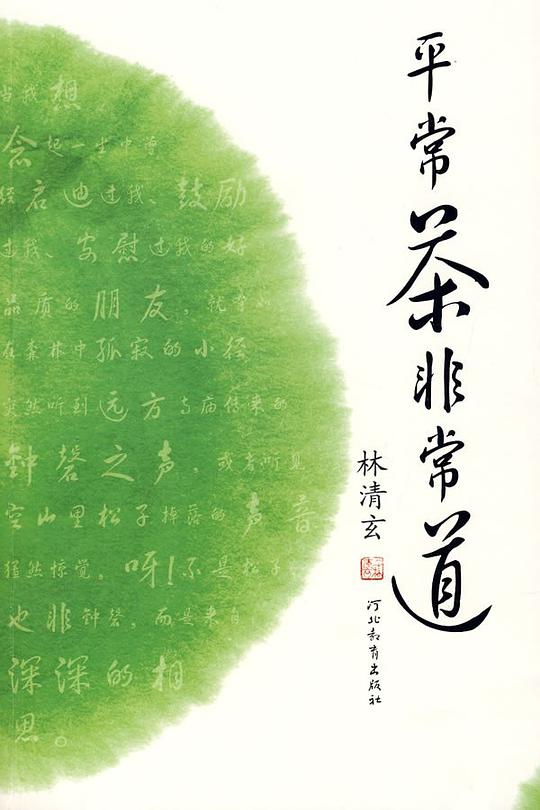 平常茶非常道
林清玄
河北教育出版社
当我想
念起一生中曾
经启迪过我、鼓励
过我、安慰过我的好
品质的朋友，就如
在森林中孤寂的小径
突然听到远方寺庙传来的
钟磬之声，或者听见
空山里松子掉落的声音
猛然惊觉，呀！不是松子，
也非钟磬，而是来自
深深的相
思。